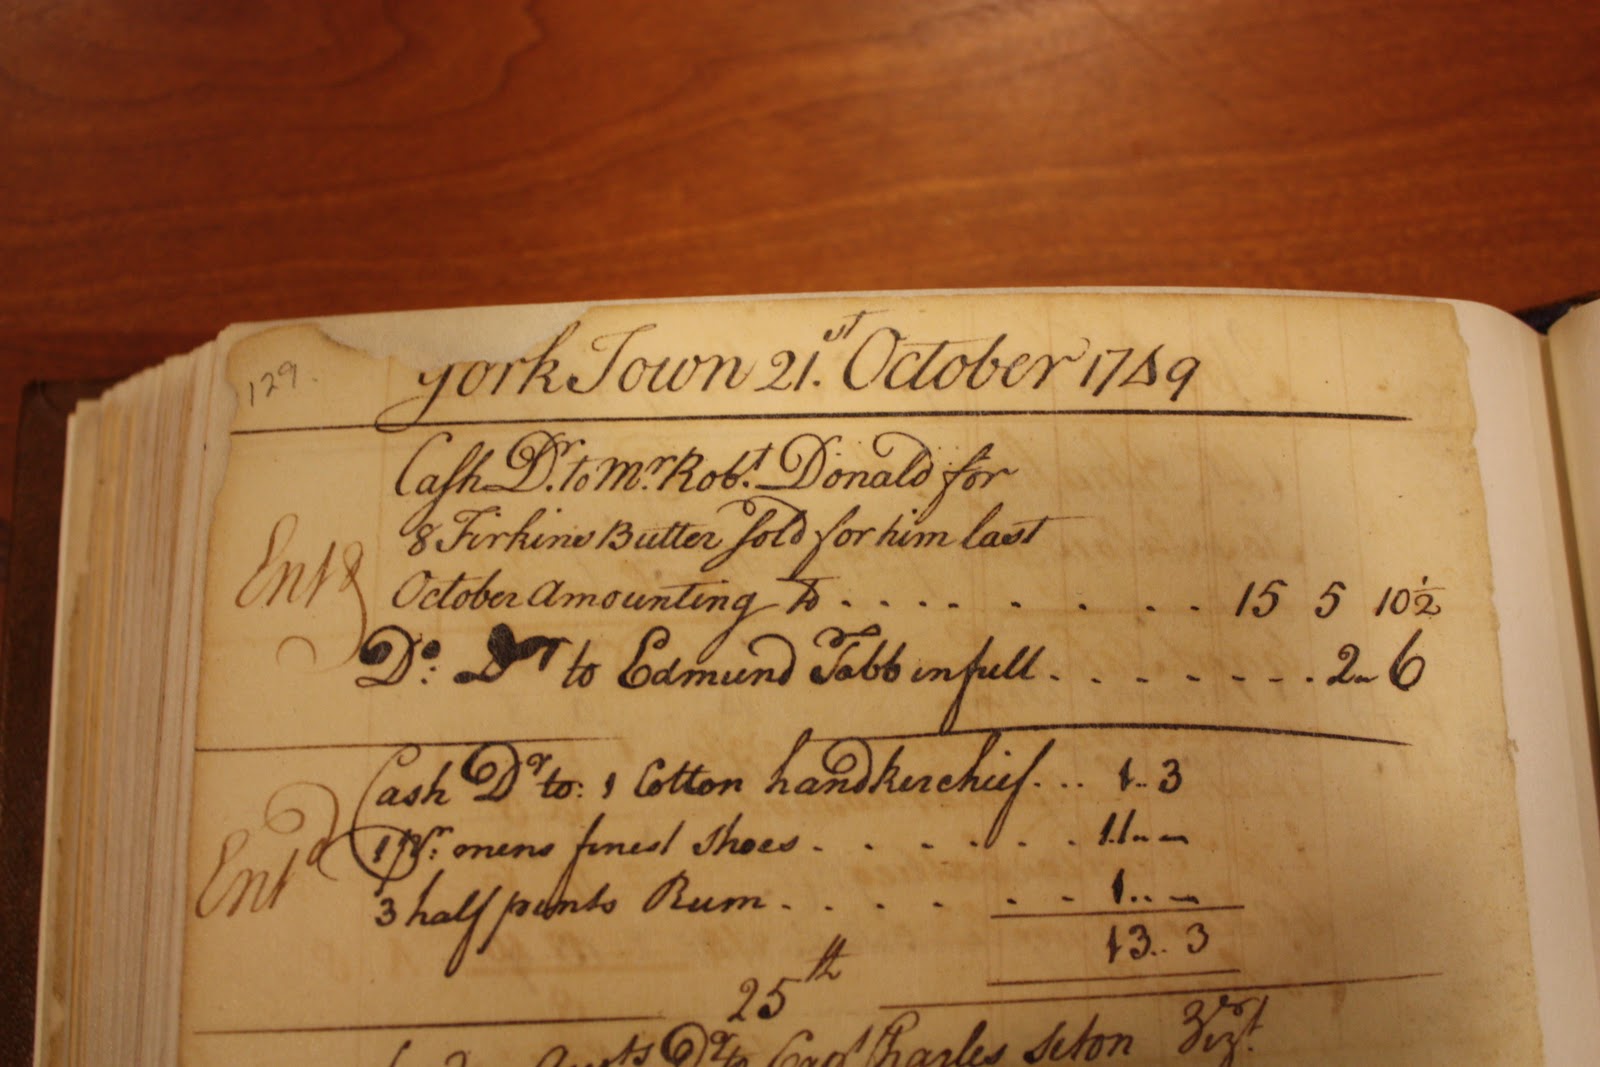 129.
York Town 21.st October 1749
Cash Dr. to Mr. Robt. Donald for
8 Firkins Butter Sold for him last
Entd
October amounting to . . . . . . . . . 15 5 10½
Do. Dr to Edmund Tabb in full . . . . . . . . 2 - 6
Cash Dr to: 1 Cotton handkerchief . . . 1 .. 3
1 pr. mens finest shoes . . . . . . . 11 .. -
Entd
3 half pints Rum . . . . . . . 1 .. -
13 .. 3
25th
Dr to Capt Charles Seton Vizt.